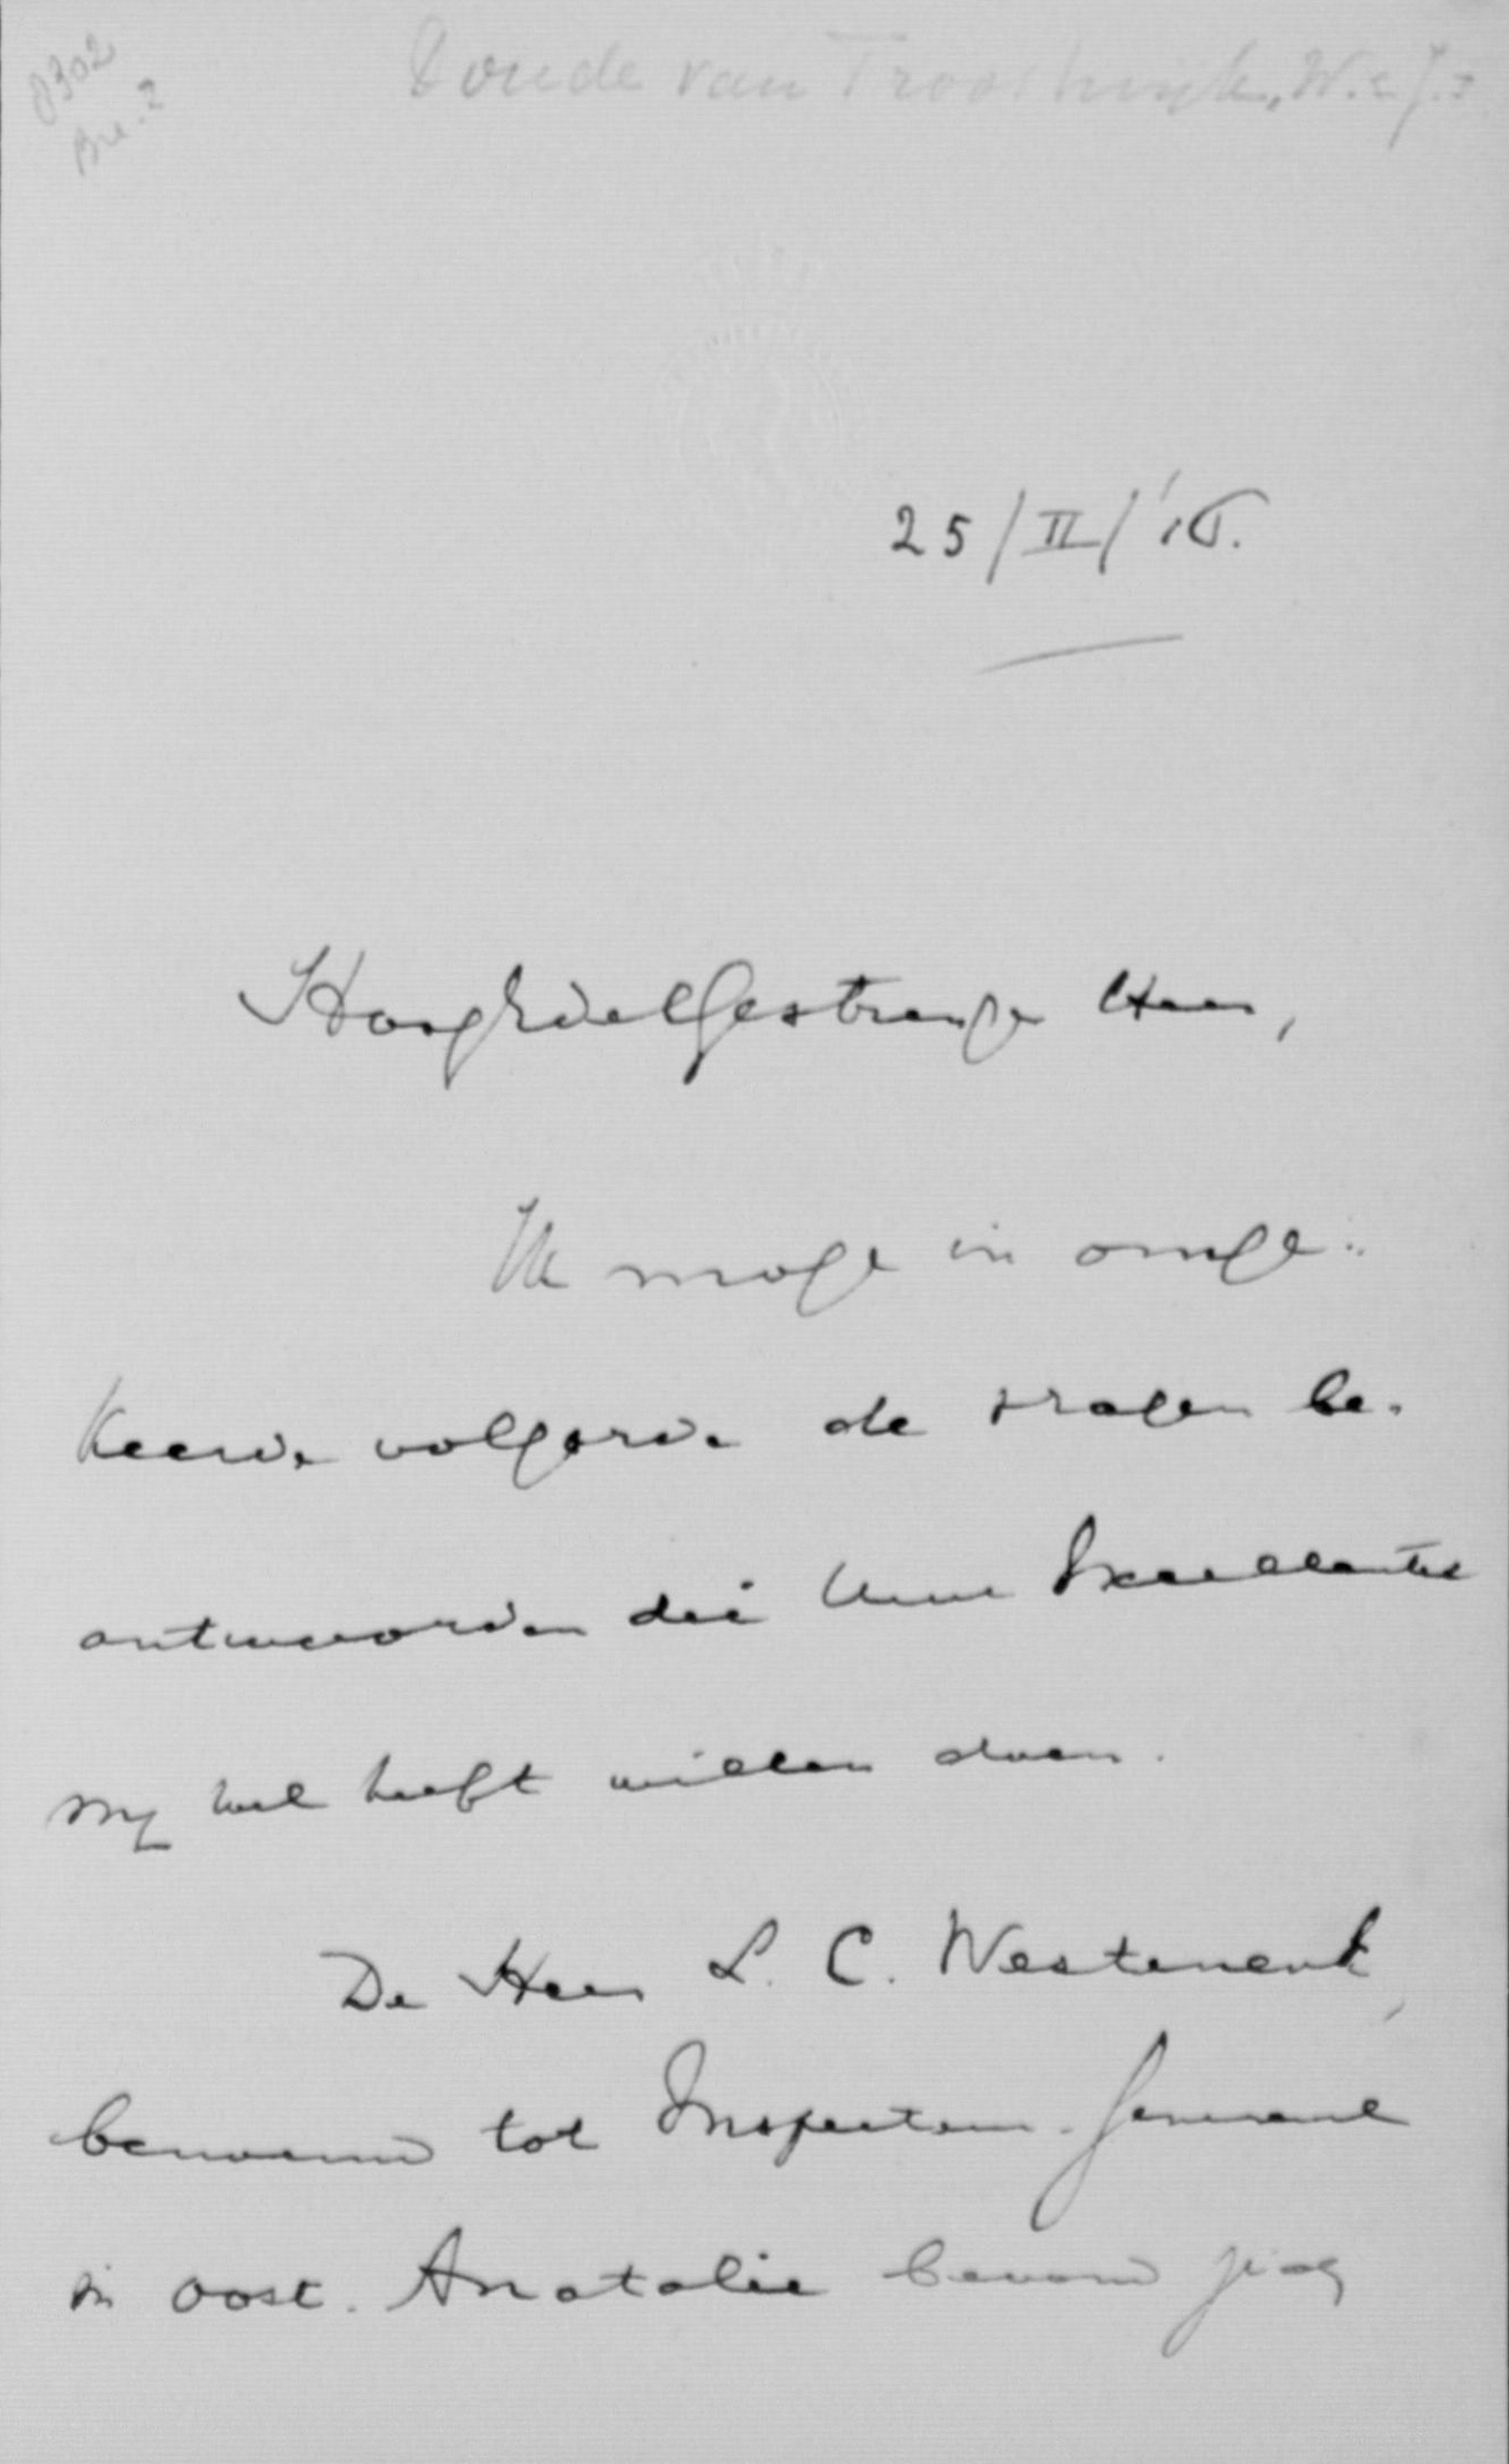 8302
Bre. 2
Doude van Troostwijk, W. I.
25/II/'15.
HoogEdelGestrenge Heer,
Ik moge in omge-
keerde volgorde de vragen be-
antwoorden die Uwe Excellentie
mij wel heeft willen doen.
De Heer L. C. Westenenk,
benoemd tot Inspecteur-Generaal
in Oost-Anatolie bevond zich